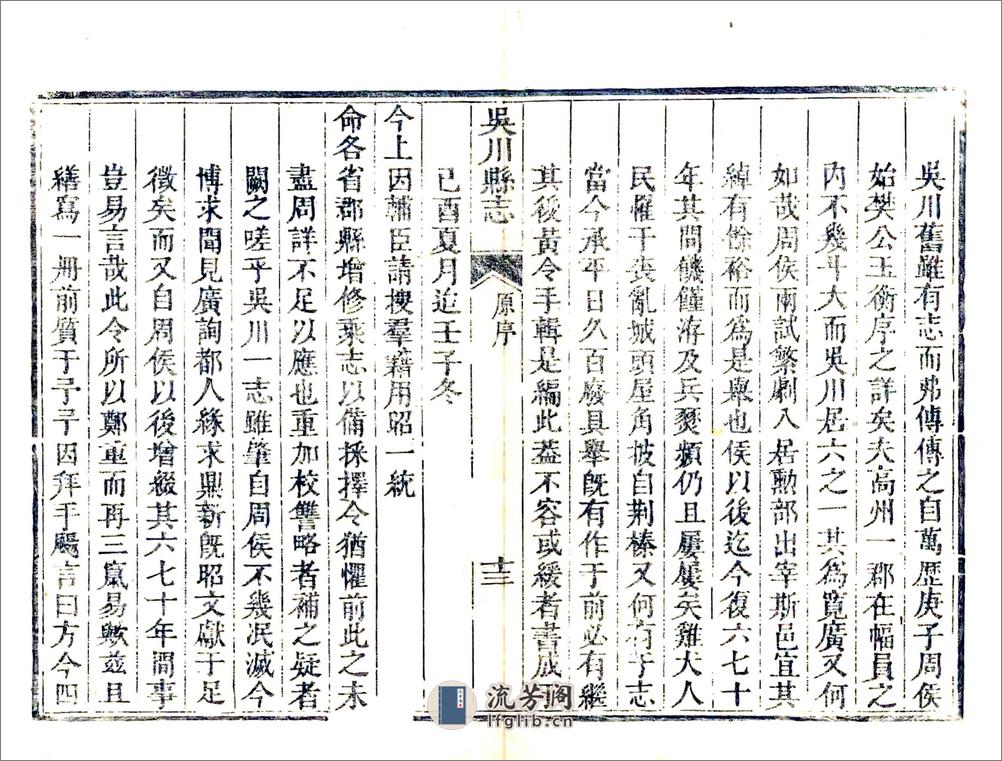 吳川舊雖有志而弗傳傳之自萬歷庚子周侯
始樊公玉衡序之詳矣夫高州一郡在幅員之
内不幾斗大而吳川居六之一其為寬廣又何
如哉周侯兩試繁劇入居勲部出宰斯邑宜其
綽有餘裕而為是舉也侯以後迄今復六七十
年其間饑饉洊及兵燹頻仍且屢屢矣雞犬人
民罹于喪亂城頭屋角披自荆榛又何有于志
當今承平日久百廢具舉旣有作于前必有繼
其後黃令手輯是編此蓋不容或緩者書成于
吳川縣志
原序
十三
已酉夏月迨壬子冬
今上因輔臣請搜羣籍用昭一統
命各省郡縣增修乘志以備採擇令猶懼前此之未
盡周詳不足以應也重加校讐略者補之疑者
闕之嗟乎吳川一志雖肇自周侯不幾泯滅今
博求聞見廣詢都人緣求鼎新旣昭文獻于足
徵矣而又自周侯以後增綴其六七十年間事
豈易言哉此令所以鄭重而再三嵐易歟茲且
繕寫一册前質于予予因拜手颺言曰方今四
流芳阁
lfglib.cn